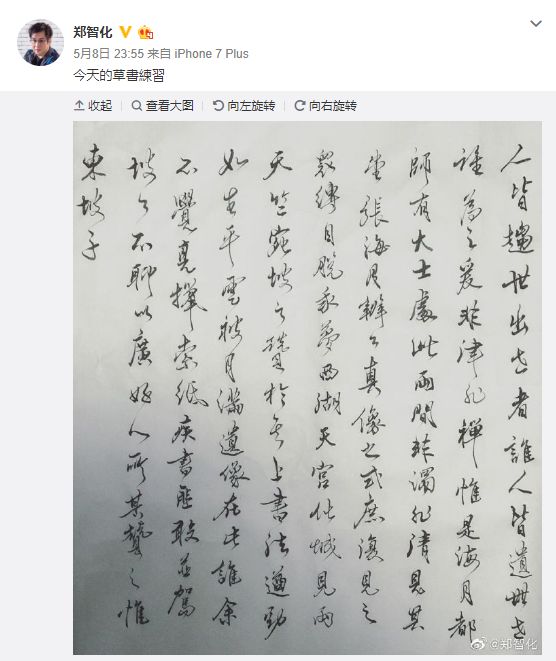 郑智化
5月8日 23:55 来自 iPhone 7 Plus
今天的草書練習
收起 查看大图 向左旋转 向右旋转
人皆趨世出世者誰人皆遺世世
誰為之爰非津非禪惟是海月都
師有大士處此兩間非濁非清見其
坐張海月辯公真像之式庶復見之
眾縛自脫我夢西湖天宮化城見兩
天竺宛坡之贊於其上書法遒勁
如生平雲披月滿遺像在此誰余
不覺亮索紙疾書匪敢並駕
坡公不聊以廣好人所其贊之惟
東坡子
@郑智化